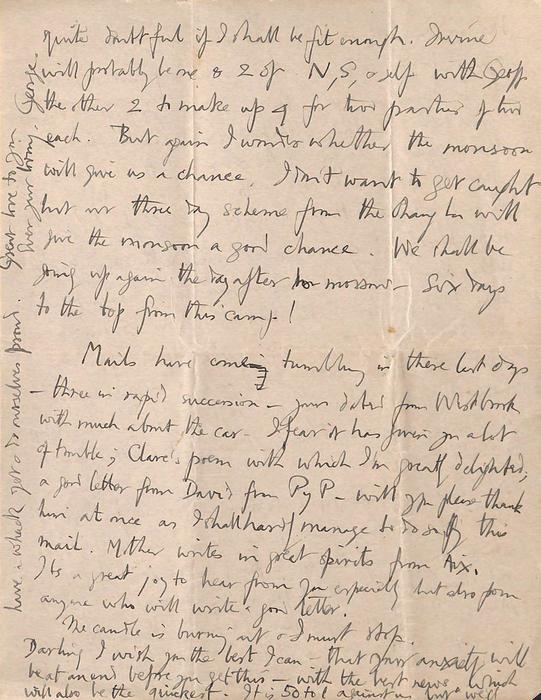 quite doubtful if I shall be fit enough. Irvine
will probably be one & 2 of N, S, & self with Geoff
the other 2 to make up 4 for two parties of two
each. But again I wonder whether the monsoon
will give us a chance. I don't want to get caught
but our three day scheme from the Chang La will
give the monsoon a good chance. We shall be
going up again the day after tomorrow – Six days
to the top from this camp!
Mails have come tumbling in these last days
– three in rapid succession – yours dated from Westbrook
with much about the car – I fear it has given you a lot
of trouble; Clare's poem with which I'm greatly delighted;
a good letter from David from P y P – will you please thank
him at once as I shall hardly manage to do so by this
mail. Mother writes in great spirits from Aix.
It's a great joy to hear from you especially but also from
anyone who will write a good letter.
The candle is burning out & I must stop.
Darling I wish you the best I can – that your anxiety will
be at an end before you get this – with the best news, which
will also be the quickest. It is 50 to 1 against us but we'll
have a whack yet & do ourselves proud. Great love to you
Ever your loving, George.